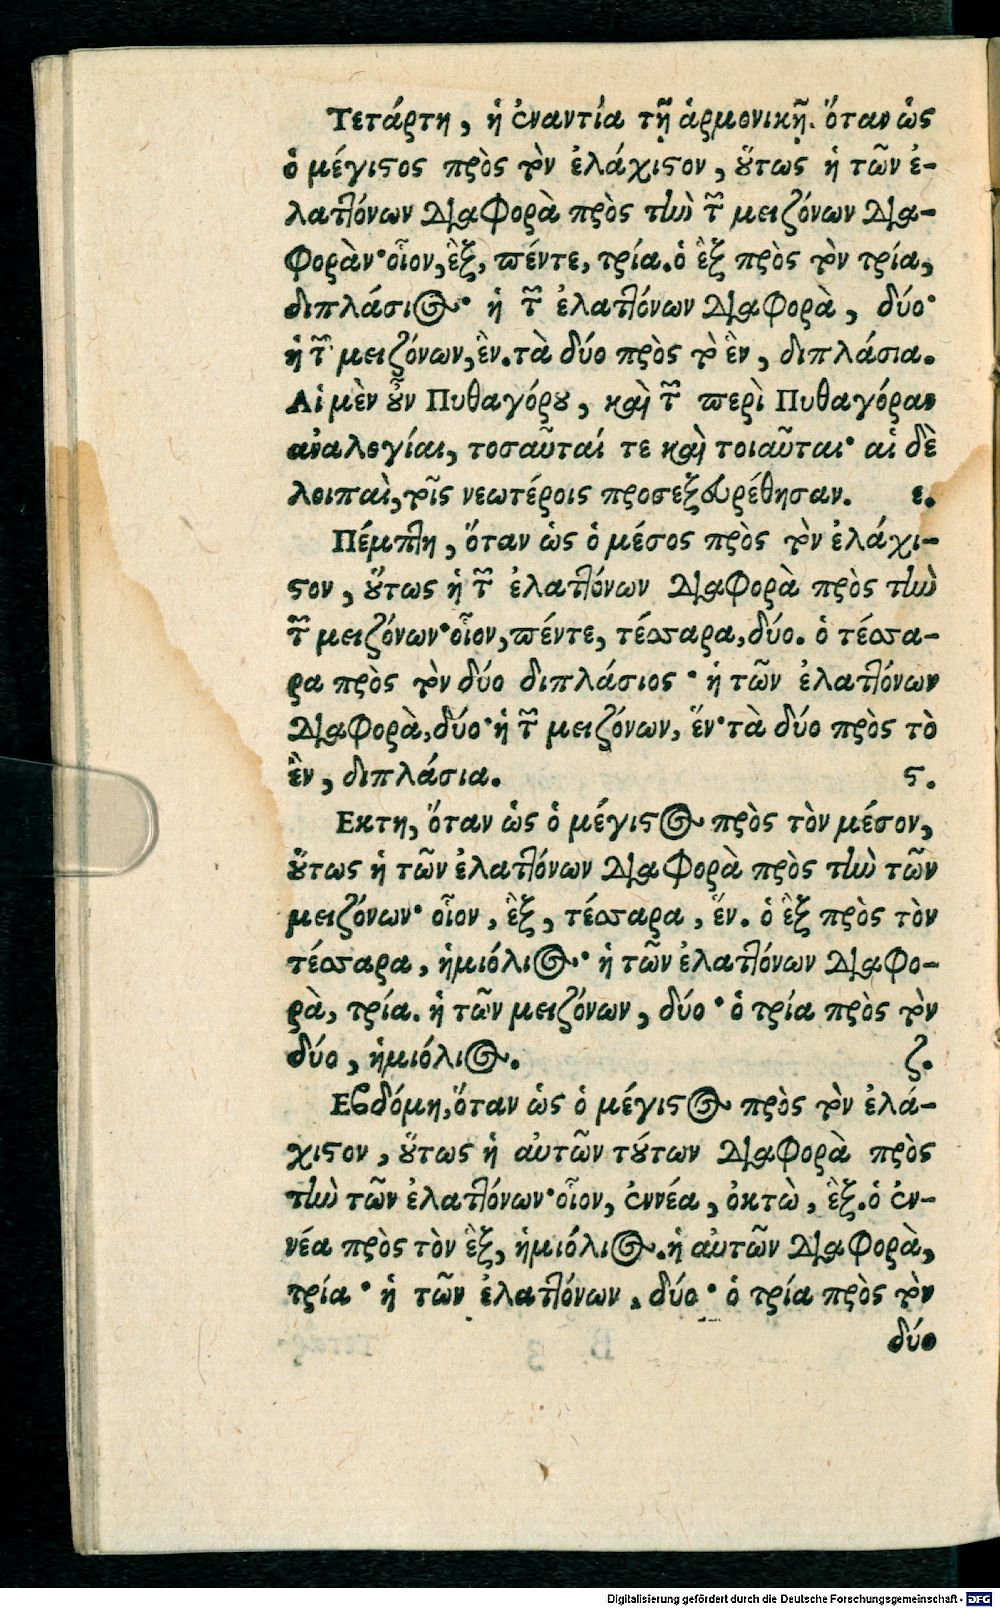 Τετάρτη, ἡ ἐναντία τῇ ἁρμονικῇ. ὅταν ὡς
ὁ μέγιϛος πρὸς τὸν ἐλάχιϛον, ȣ̔́τως ἡ τῶν ἐ-
λαττόνων διαφορὰ πρὸς τὴν τῶν μειζόνων δια-
φοράν· οἷον, ἓξ, πέντε, τρία. ὁ ἓξ πρὸς τὸν τρία,
διπλάσιος· ἡ τῶν ἐλαττόνων διαφορὰ, δύο·
ἡ τῶν μειζόνων, ἓν. τὰ δύο πρὸς τὸ ἓν, διπλάσια.
Αἱ μὲν ȣ̓͂ν Πυθαγόρȣ, καὶ τῶν περὶ Πυθαγόραν
ἀναλογίαι, τοσαῦταί τε καὶ τοιαῦται· αἱ δὲ
λοιπαὶ, τοῖς νεωτέροις προσεξευρέθησαν. ε.
Πέμπτη, ὅταν ὡς ὁ μέσος πρὸς τὸν ἐλάχι-
ϛον, ȣ̔́τως ἡ τῶν ἐλαττόνων διαφορὰ πρὸς τὴν
τῶν μειζόνων· οἷον, πέντε, τέσσαρα, δύο. ὁ τέσσα-
ρα πρὸς τὸν δύο διπλάσιος· ἡ τῶν ἐλαττόνων
διαφορὰ, δύο· ἡ τῶν μειζόνων, ἕν· τὰ δύο πρὸς τὸ
ἓν, διπλάσια. ϛ.
Εκτη, ὅταν ὡς ὁ μέγιϛος πρὸς τὸν μέσον,
ȣ̔́τως ἡ τῶν ἐλαττόνων διαφορὰ πρὸς τὴν τῶν
μειζόνων· οἷον, ἓξ, τέσσαρα, ἕν. ὁ ἓξ πρὸς τὸν
τέσσαρα, ἡμιόλιος· ἡ τῶν ἐλαττόνων διαφο-
ρὰ, τρία. ἡ τῶν μειζόνων, δύο· ὁ τρία πρὸς τὸν
δύο, ἡμιόλιος. ζ.
Εϐδόμη, ὅταν ὡς ὁ μέγιϛος πρὸς τὸν ἐλά-
χιϛον, ȣ̔́τως ἡ αὐτῶν τȣ́των διαφορὰ πρὸς
τὴν τῶν ἐλαττόνων· οἷον, ἐννέα, ὀκτὼ, ἓξ. ὁ ἐν-
νέα πρὸς τὸν ἓξ, ἡμιόλιος. ἡ αὐτῶν διαφορὰ,
τρία· ἡ τῶν ἐλαττόνων, δύο· ὁ τρία πρὸς τὸν
δύο
Digitalisierung gefördert durch die Deutsche Forschungsgemeinschaft - DFG